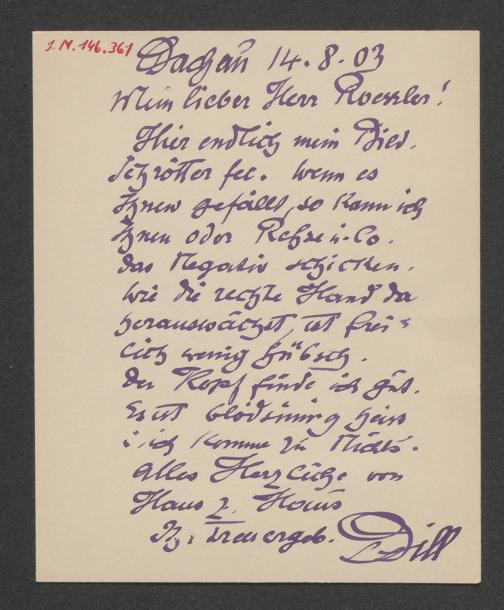 I.N. 146.361
Dachau 14.8.03
Mein lieber Herr Roessler!
Hier endlich mein Bild.
Schrötter fec. Wenn es
Ihnen gefällt, so kann ich
Ihnen oder Rehse u. Co.
das Negativ schicken.
Wie die rechte Hand da
herauswächst, ist frei-
lich wenig hübsch.
Der Kopf finde ich gut.
Es ist blödsinnig heiss
u. ich komme zu Nichts.
Alles Herzliche von
Haus z. Haus
Ihr treuergeb. Dill